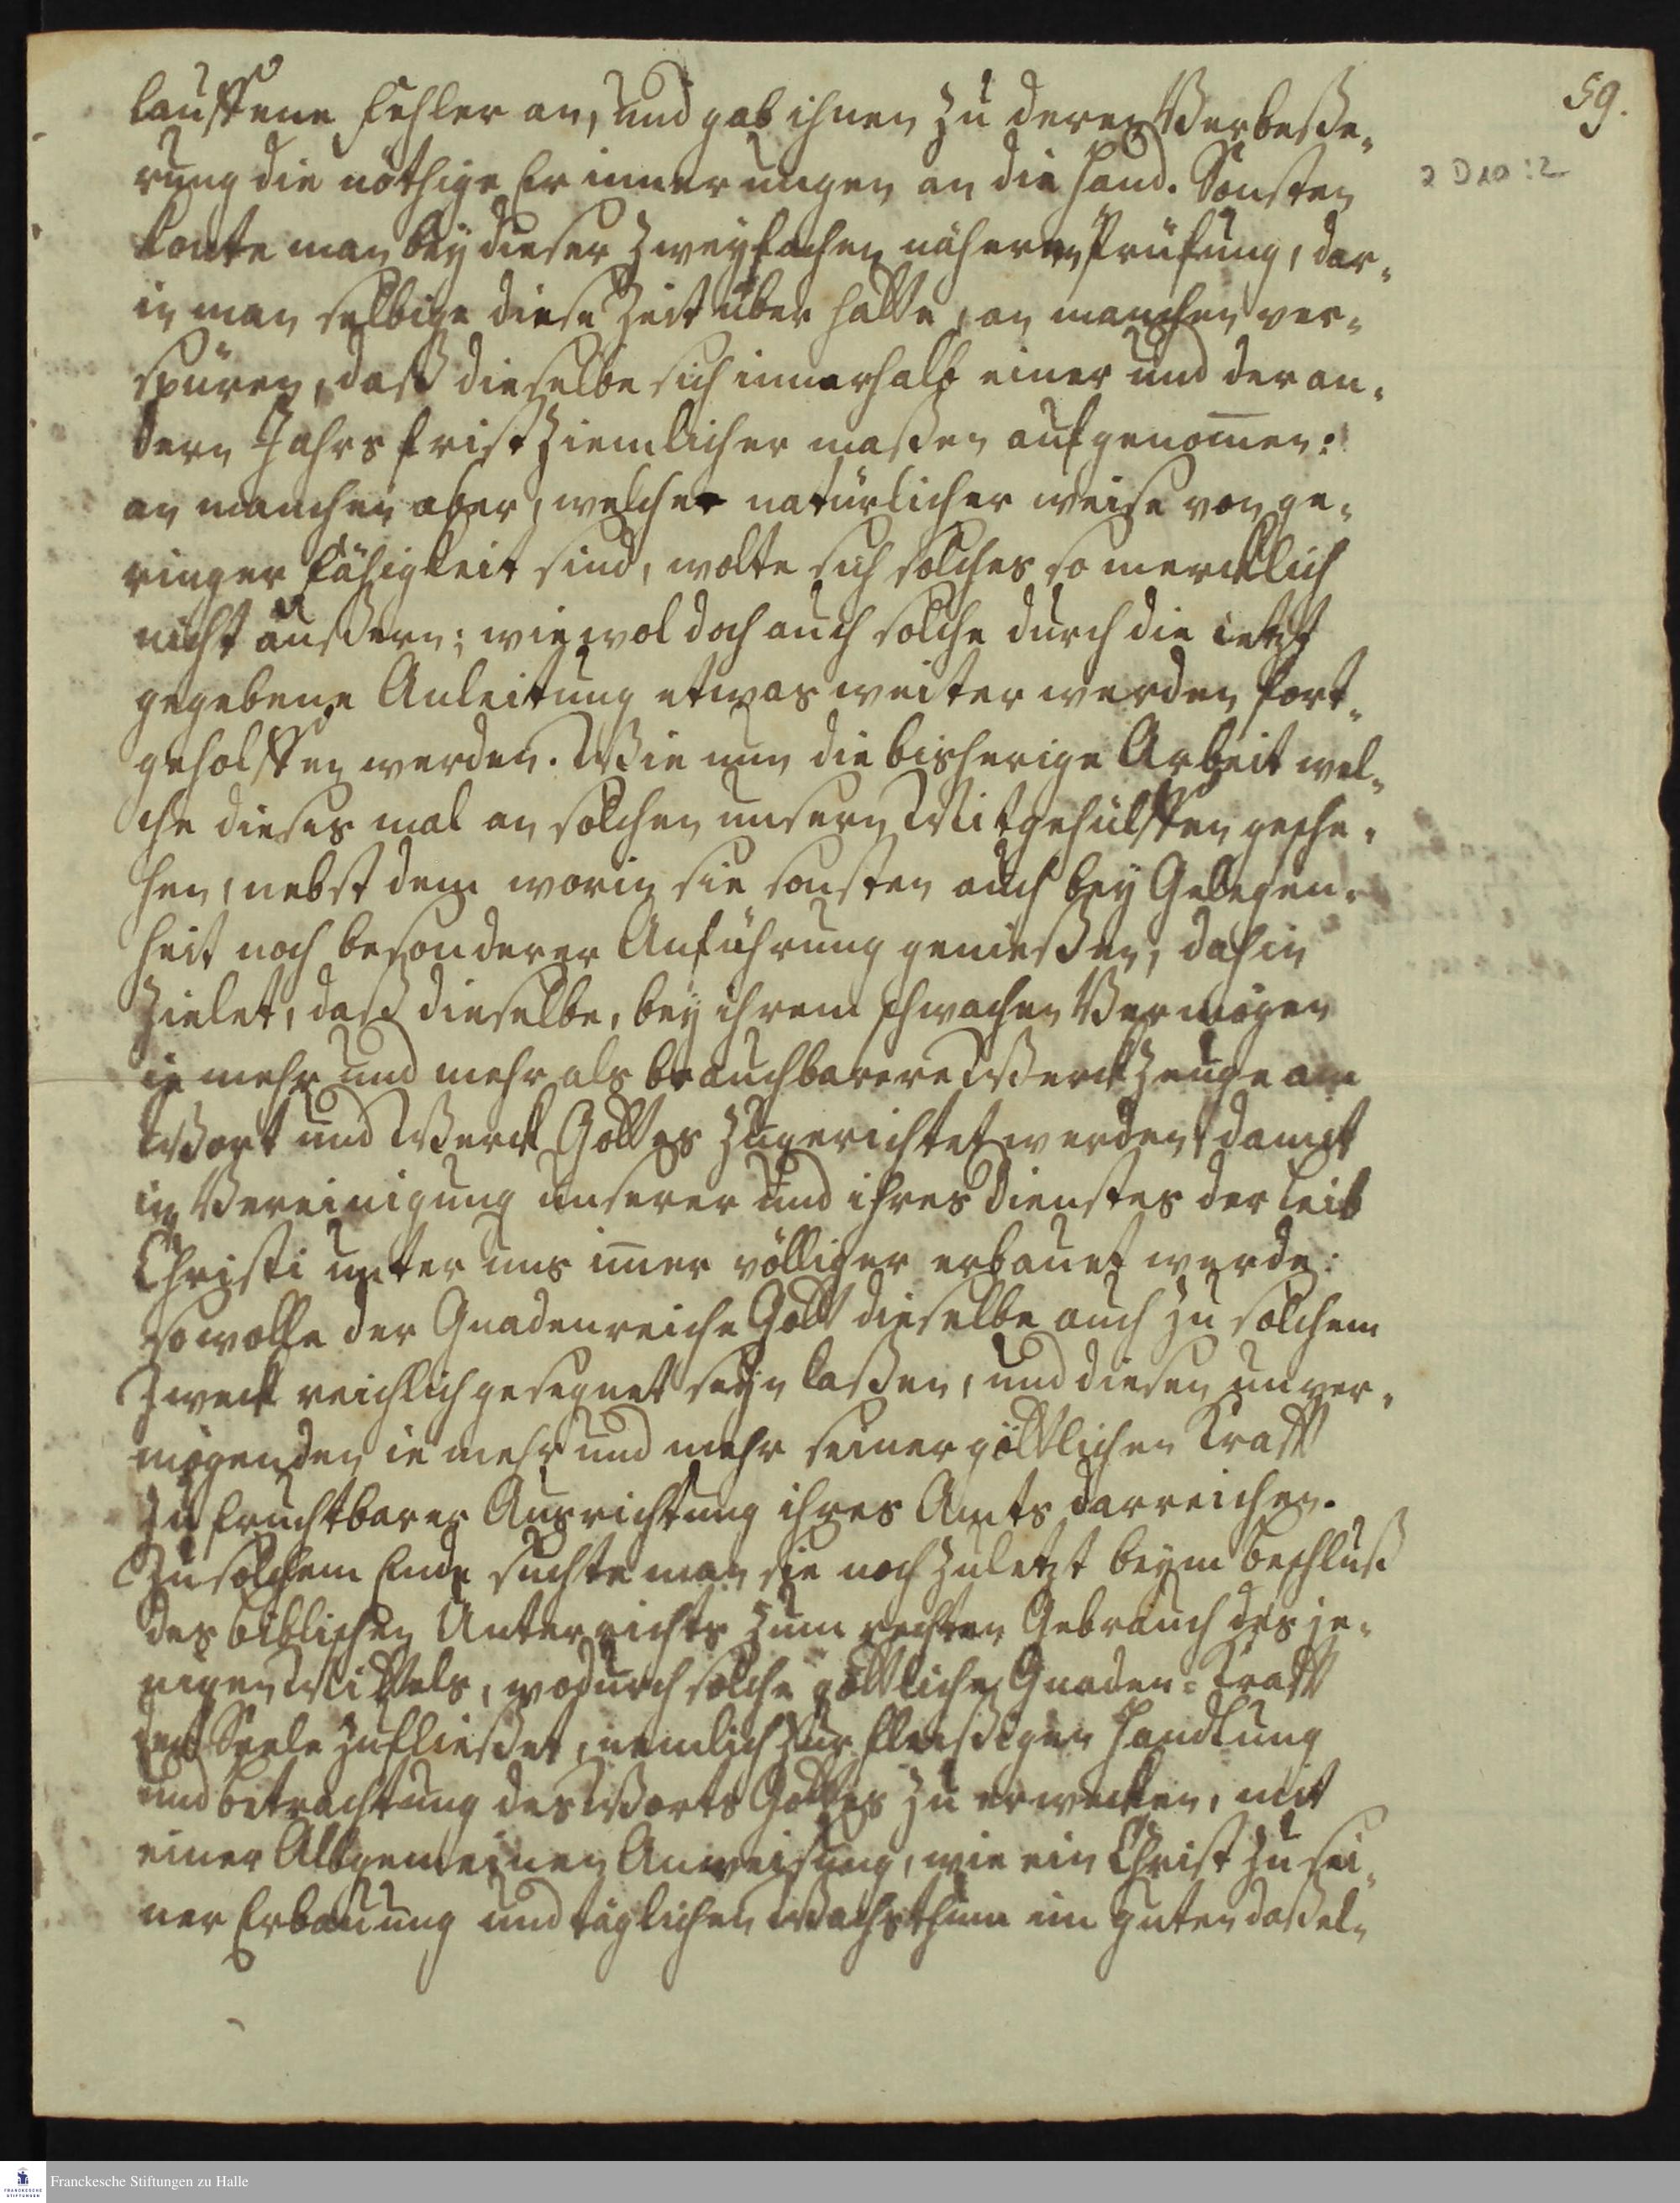 59.
2 D 10 : 2
lauffene Fehler an, und gab ihnen zu deren Verbeße-
rung die nöthige Erinnerungen an die Hand. Sonsten
konte man bey dieser zweyfachen nähern Prüfung, dar-
in man selbige diese Zeit über hatte, an manchen ver-
spüren, daß dieselbe sich innerhalb einer und der an-
dern Jahrs frist ziemlicher maßen aufgenom̅en:
an manchen aber, welche natürlicher weise von ge-
ringer Fähigkeit sind, wolte sich solches so mercklich
nicht äußern; wiewol doch auch solche durch die ietzt
gegebene Anleitung etwas weiter werden fort-
geholffen werden. Wie nun die bisherige Arbeit wel-
che dieses mal an solchen unsern Mitgehülffen gesche-
hen, nebst dem worin sie sonsten auch bey Gelegen-
heit noch besonderer Anführung genießen, dahin
zielet, daß dieselbe, bey ihrem schwachen Vermögen
ie mehr und mehr als brauchbarere Werckzeuge am
Wort und Werck Gottes zugerichtet werden, damit
in Vereinigung unserer und ihres Dienstes der Leib
Christi unter uns im̅er völliger erbauet werde:
so wolle der Gnadenreiche Gott dieselbe auch zu solchem
Zweck reichlich gesegnet seyn laßen, und diesen unver-
mögenden ie mehr und mehr seiner göttlichen Krafft
zu fruchtbarer Ausrichtung ihres Amts darreichen.
Zu solchem Ende suchte man sie noch zuletzt beym beschluß
des biblischen Unterrichts zum rechten Gebrauch desje-
nigen Mittels, wodurch solche göttliche Gnaden-Krafft
der Seele zufließet, nemlich zur fleißigen Handlung
und betrachtung des Worts Gottes zu erwecken, mit
einer Allgemeinen Anweisung, wie ein Christ zu sei-
ner Erbauung und täglichen Wachsthum im guten daßel-
Franckesche Stiftungen zu Halle
FRANCKESCHE
STIFTUNGEN